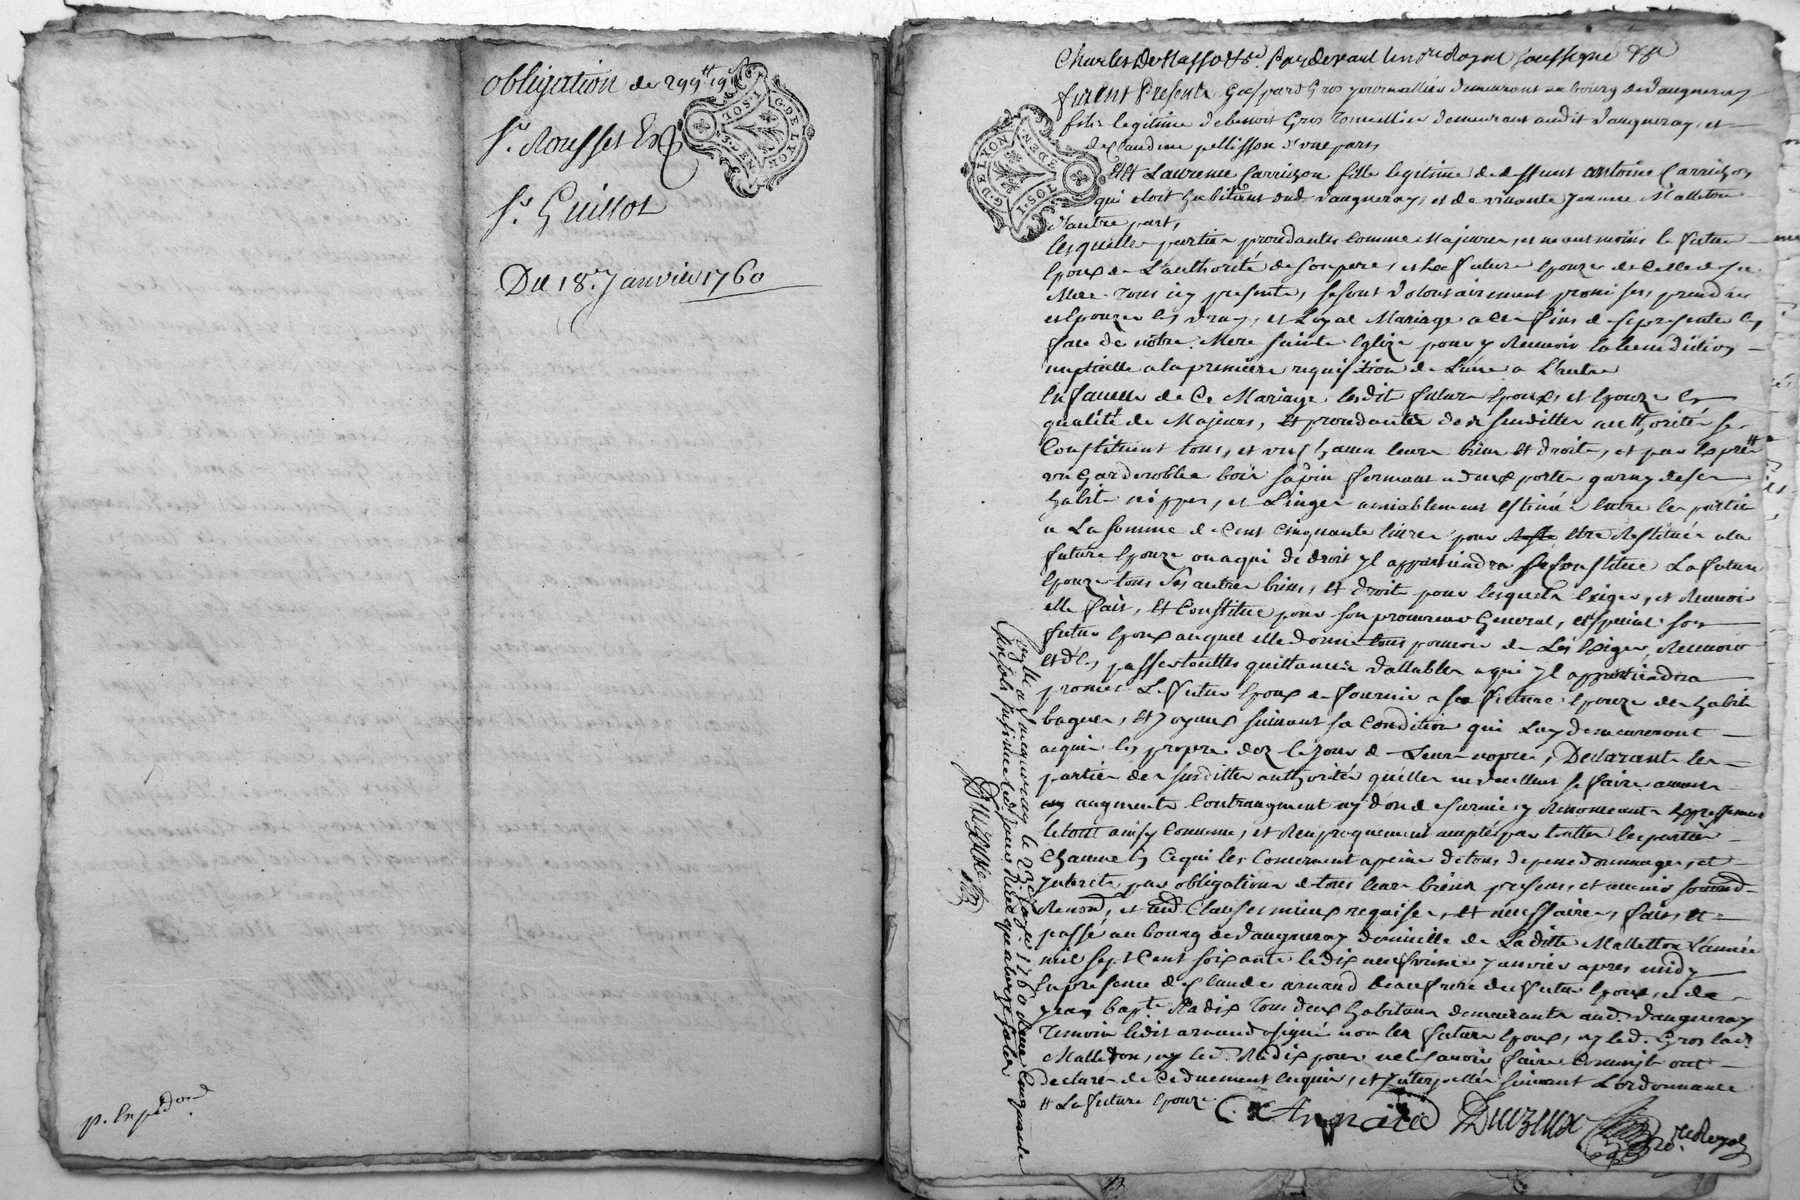 obligation de 299tt 19s
Sr. Rousset
Sr. Guillot
Du 18e. Janvier 1760
G. DE LYON
1. SOL
Pardevant le no.re Royal soussigné
furent Presents Gaspard Gros journallier demeurant au bourg de vaugneray
fils legitime de benoit Gros demeurant audit vaugneray, et
de claudine pellisson d'une part,
Et Laurence Carrichon fille legitime de deffunt antoine Carrichon
qui etoit habitant dud. vaugneray, et de vivante Jeanne Malleton
d'autre part,
lesquelles parties procedantes comme Majeures, et neantmoins le futur
Epoux de L'authorité de son pere, et La future Epouze de celle de sa
Mere tous icy presents, se sont volontairement promis se prendre
et Epouzer en vray, et Loyal Mariage a ces fins de se presenter en
face de nôtre Mere sainte Eglize pour y Recevoir la benediction
nuptialle a la premiere requisition de L'une a L'autre
En faveur de Ce Mariage lesdits futurs Epoux, et Epouze en
qualité de Majeurs, Et procedantes de susdittes authorités se
Constituent tous, et uns chacun leurs biens Et droits, et par Exprès tt
un Garderobbe bois sapin fermant a deux portes garny de ses
habits nippes, et Linges amiablement estimés Entre les parties
a La somme de Cent Cinquante livres pour être Restituée a la
future Epouze ou a qui de droit yl appartiendra se Constitue La future
Epouze tous ses autres biens, Et droits pour lesquels Exiger, et Recevoir
elle fait, Et Constitue pour son procureur General, et special son
futur Epoux auquel elle donne tous pouvoir de Les Exiger, Recevoir
et d'en passer touttes quittances vallables a qui yl appartiendra
promet Le futur Epoux de fournir a sa future Epouze des habits
bagues, Et Joyaux suivant sa Condition qui Luy demeureront
acquis en propre dez le jour de Leurs nopces, Declarant les
parties de susdittes authorités qu'elles ne veullent se faire aucuns
augments Contraugment ny don de survie y Renonceant Expressement
le tout ainsy Convenu, et Reciproquement accepté par touttes les parties
Chacune En Ce qui les Concernent a peine de tous depens dommages, et
Interets par obligation de tous leurs biens presens, et avenir
Renond, et Clauses mieux requises, Et necessaires, fait, et
passé au bourg de vaugneray domicille de Laditte Malletton L'année
mil sept Cent soixante le dix neufvieme Janvier apres midy
En presence de Claude arnaud beaufrere du futur Epoux, et de
Jean bapte. Radix tous deux habitans demeurants aud. vaugneray
Temoins ledit arnaud a signé non les futurs Epoux, ny led. Gros lad.
Malletton, ny led. Radix pour ne le sçavoir faire Comm'ils ont
declaré de Ce duement Enquis, et Interpellés suivant L'ordonnance
tt La future Epouze
C. Arnaud Duzeux no.re Royal
Conllé a vaugneray le 23e Janvr. 1760